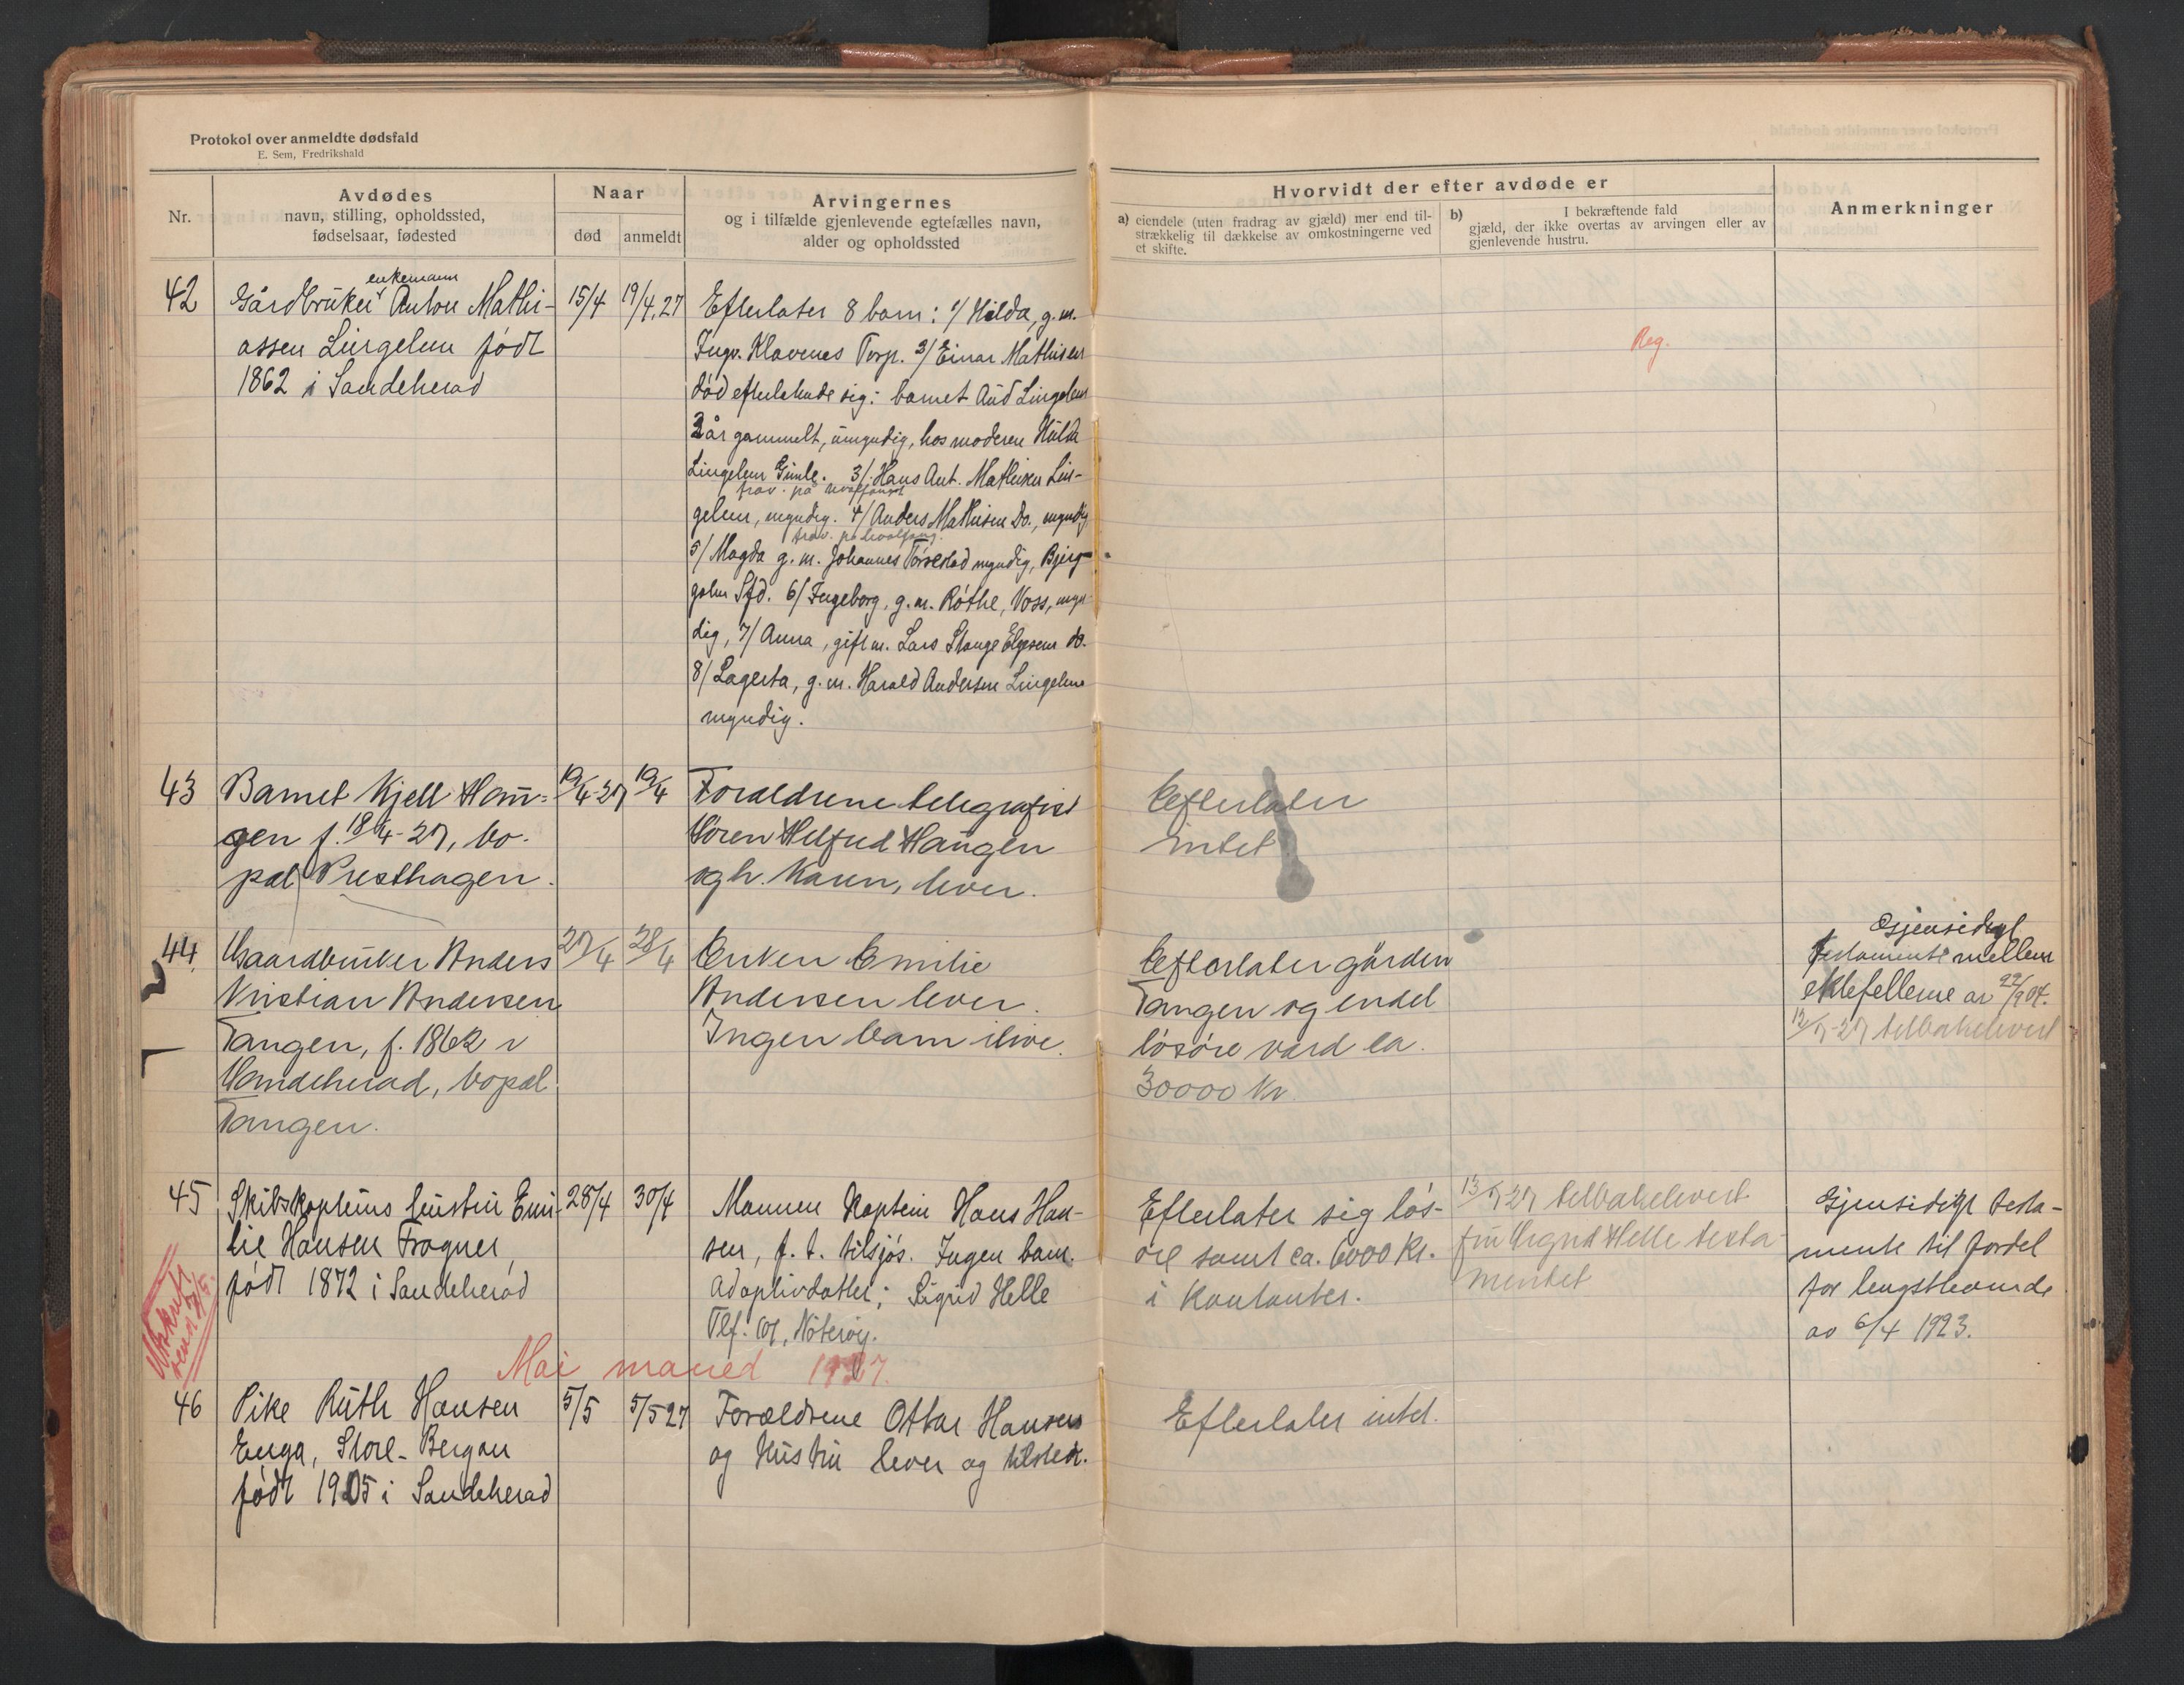 Protokol over anmeldte dødsfald
E. Sem, Fredrikshald
Nr.
Avdødes
navn, stilling, opholdssted,
fødselsaar, fødested
Naar
død
anmeldt
Arvingernes
og i tilfælde gjenlevende egtefælles navn,
alder og opholdssted
Hvorvidt der efter avdøde er
a) eiendele (uten fradrag av gjæld) mer end til-
strækkelig til dækkelse av omkostningerne ved
et skifte.
b) I bekræftende fald
gjæld, der ikke overtas av arvingen eller av
gjenlevende hustru.
Anmerkninger
42
enkemann
Gårdbruker Anton Mathi-
assen Lingelem født
1862 i Sandeherad
15/4
19/4.27
Efterlater 8 barn: 1/ Hilda, g.m.
Ingv. Klavenes Torp. 2/ Einar Mathisen
død efterlatende sig: barnet Aud Lingelem
2 år gammelt, umyndig, hos moderen Hulda
Lingelem Gimle. 3/ Hans Ant. Mathisen Lin-
frav. på hvalfangst
gelem, myndig. 4/ Anders Mathisen Do., myndig
frav. på hvalfang.
5/ Magda g.m. Johannes Torsestad myndig, Bjerg-
golm Sfd. 6/ Ingeborg, g.m. Røthe, Voss, myn-
dig, 7/ Anna, gift m. Lars Stange Elgesem do.
8/ Lagerta, g.m. Harald Andersen Lingelem
myndig.
Reg.
43
Barnet Kjell Hau-
gen f. 18/4-27, bo-
pæl Presthagen.
19/4-27
19/4
Foreldrene telegrafist
Søren Haugen
og h. Karen, lever.
Efterlater
intet
44.
Gaardbruker Anders
Kristian Andersen
Tangen, f. 1862 i
Sandeherad, bopæl
Tangen.
27/4
28/4
Enken Emilie
Andersen lever.
Ingen barn ilive.
Efterlater gården
Tangen og endel
løsøre værd ca.
30000 kr.
Gjensidigt
testamente mellem
ektefellerne av 22/9 04.
12/5-27 tilbakelevert
45
Skibskapteins hustru Emi-
lie Hansen Fragner,
født 1872 i Sandeherad
28/4
30/4
Mannen Kaptein Hans Han-
sen, f.t. tilsjøs. Ingen barn.
Adoptivdatter: Sigrid Helle
Tlf. Nøterøy.
Efterlater sig løs-
øre samt ca. 6000 kr.
i kontanter.
13/5-27 tilbakelevert
fru Sigrid Helle testa-
mentet
Gjensidigt testa-
mente til fordel
for lengstlevende
av 6/4 1923.
Mai maned 1927.
46
Pike Ruth Hansen
Enga, Store-Bergan
født 1905 i Sandeherad
5/5
5/5 27
Forældrene Ottar Hansen
og Hustru lever og tilstede.
Efterlater intet.